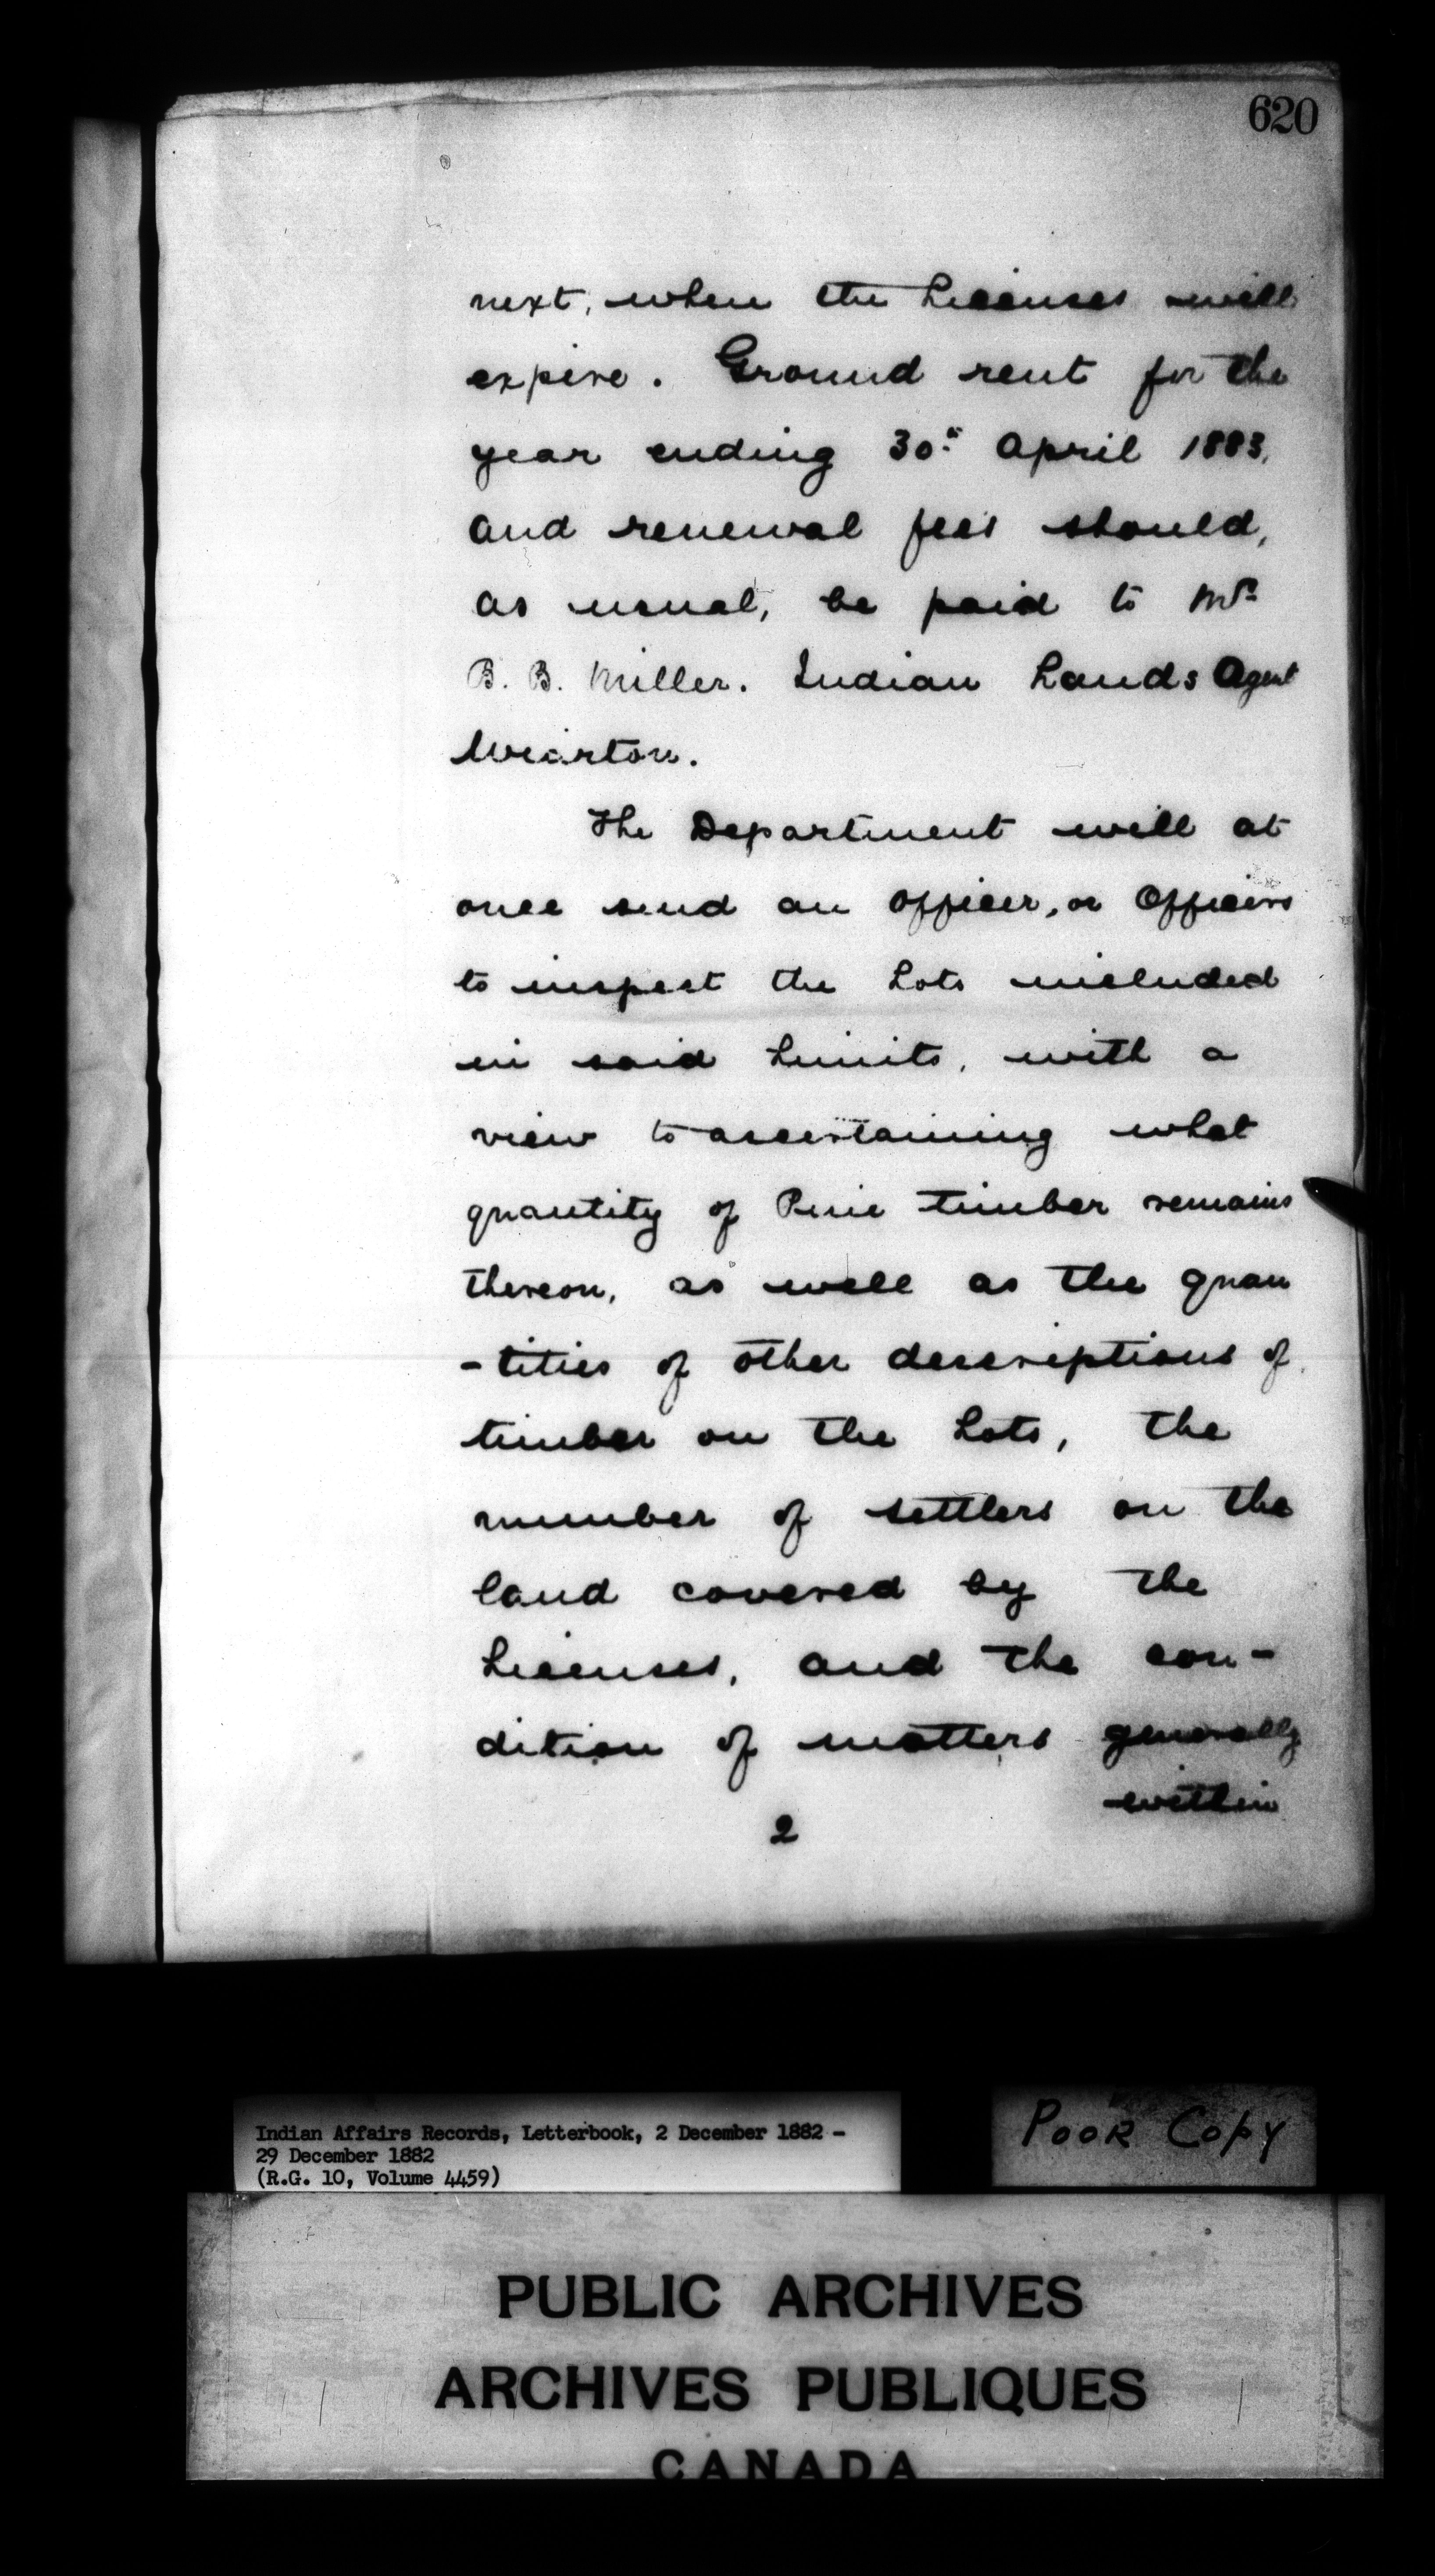 620
next, when the Licenses will
expire. Ground rent for the
year ending 30th April 1883,
and renewal fees should,
as usual, be paid to Mr
B. B. Miller. Indian Lands Agent
Wiarton.
The Department will at
once send an Officer, or Officers
to inspect the Lots included
in said Limits, with a
view to ascertaining what
quantity of Pine timber remains
thereon, as well as the quan
-tities of other descriptions of
timber on the Lots, the
number of settlers on the
land covered by the
Licenses, and the con-
dition of matters generally
within
2
Indian Affairs Records, Letterbook, 2 December 1882 -
29 December 1882
(R.G. 10, Volume 4459)
POOR COPY
PUBLIC ARCHIVES
ARCHIVES PUBLIQUES
CANADA